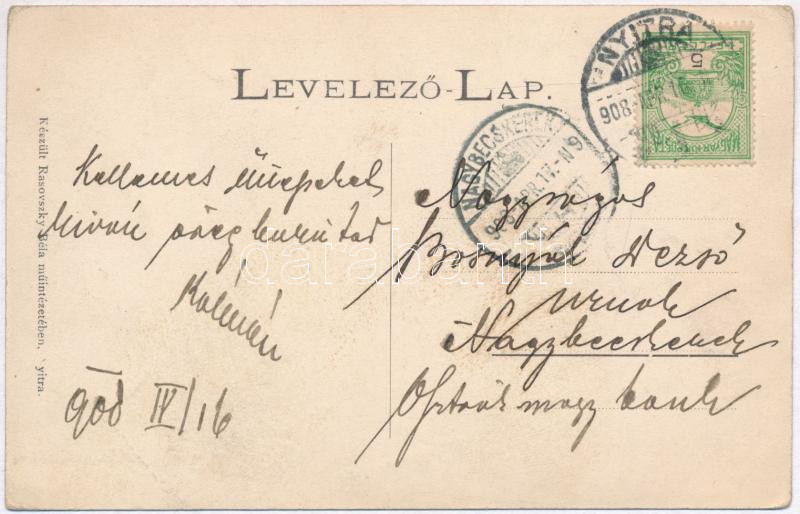 LEVELEZŐ-LAP.
NYITRA
908
NAGYBECSKEREK
908 ÁPR. 17. N 9
5
MAGYAR KIR. POSTA
Kellemes ünnepeket
kíván
Kálmán
908 IV/16
Nagyságos
Bosnyák Dezső
urnak
Nagybecskerek
Osztrák magy bank
Készült Rasovszky Béla műintézetében, yitra.
darabanth